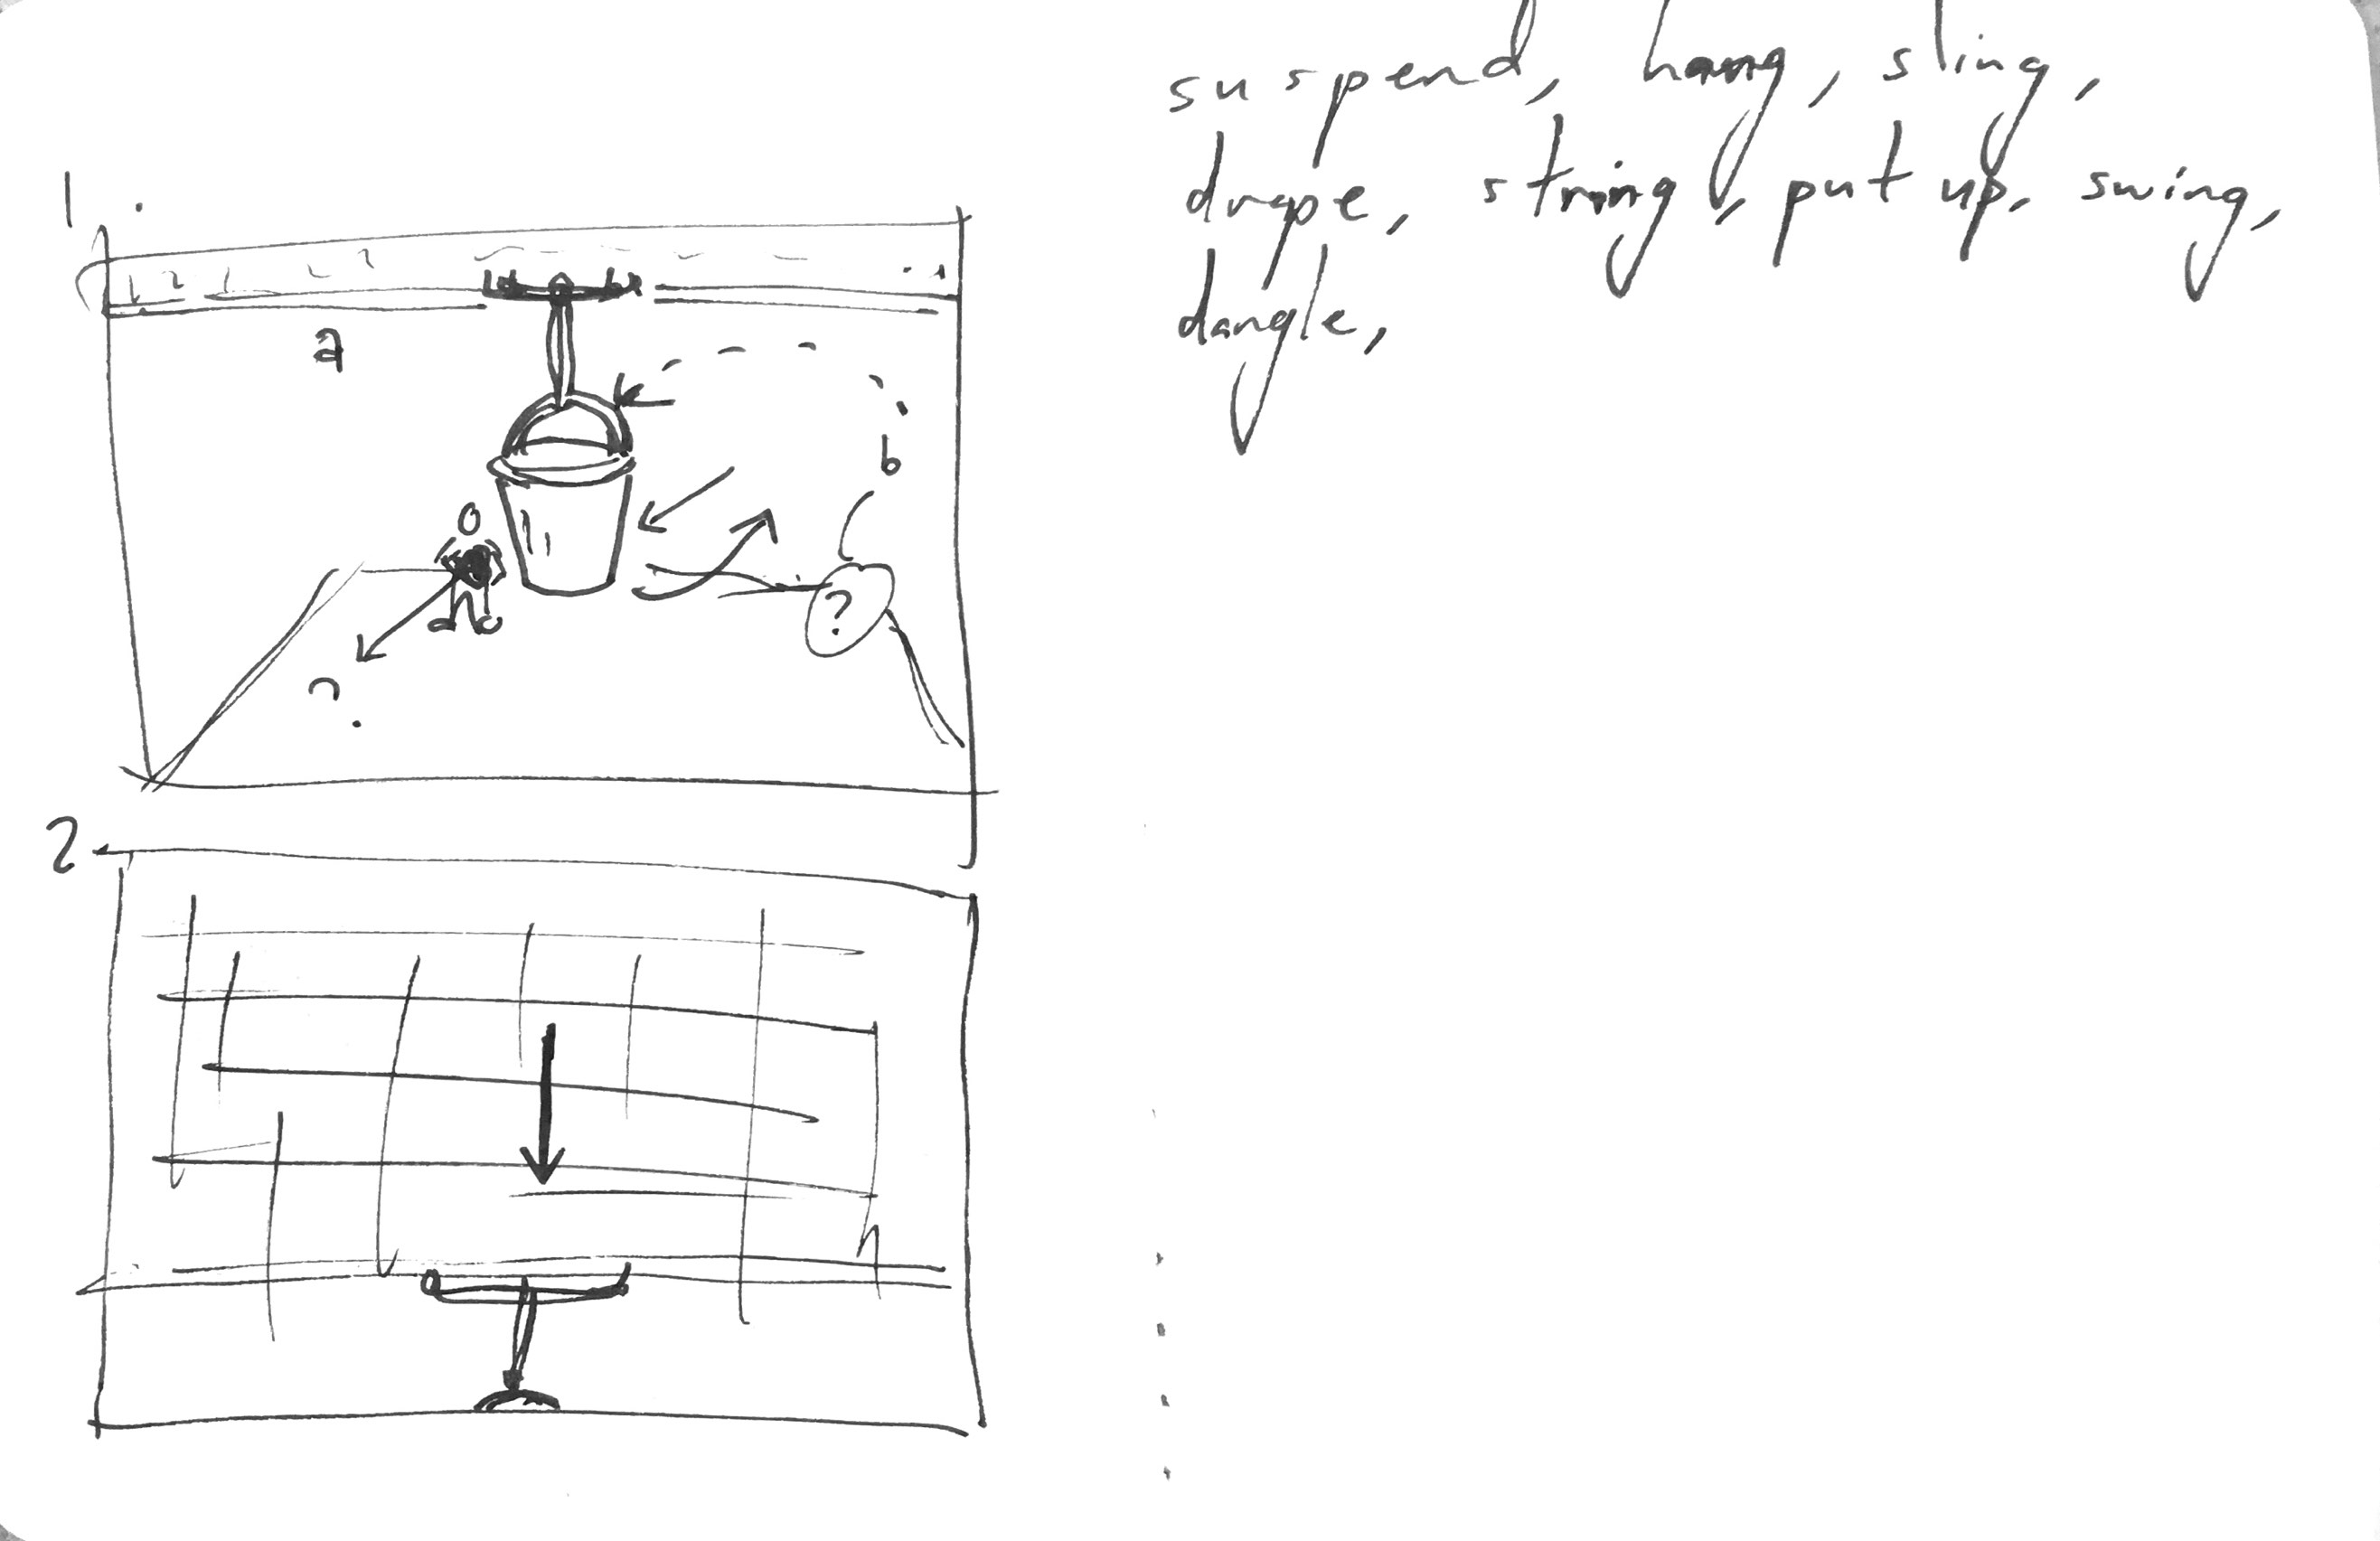 suspend, hang, sling,
drape, string, put up, swing,
dangle,
1.
a
b
?
?
2